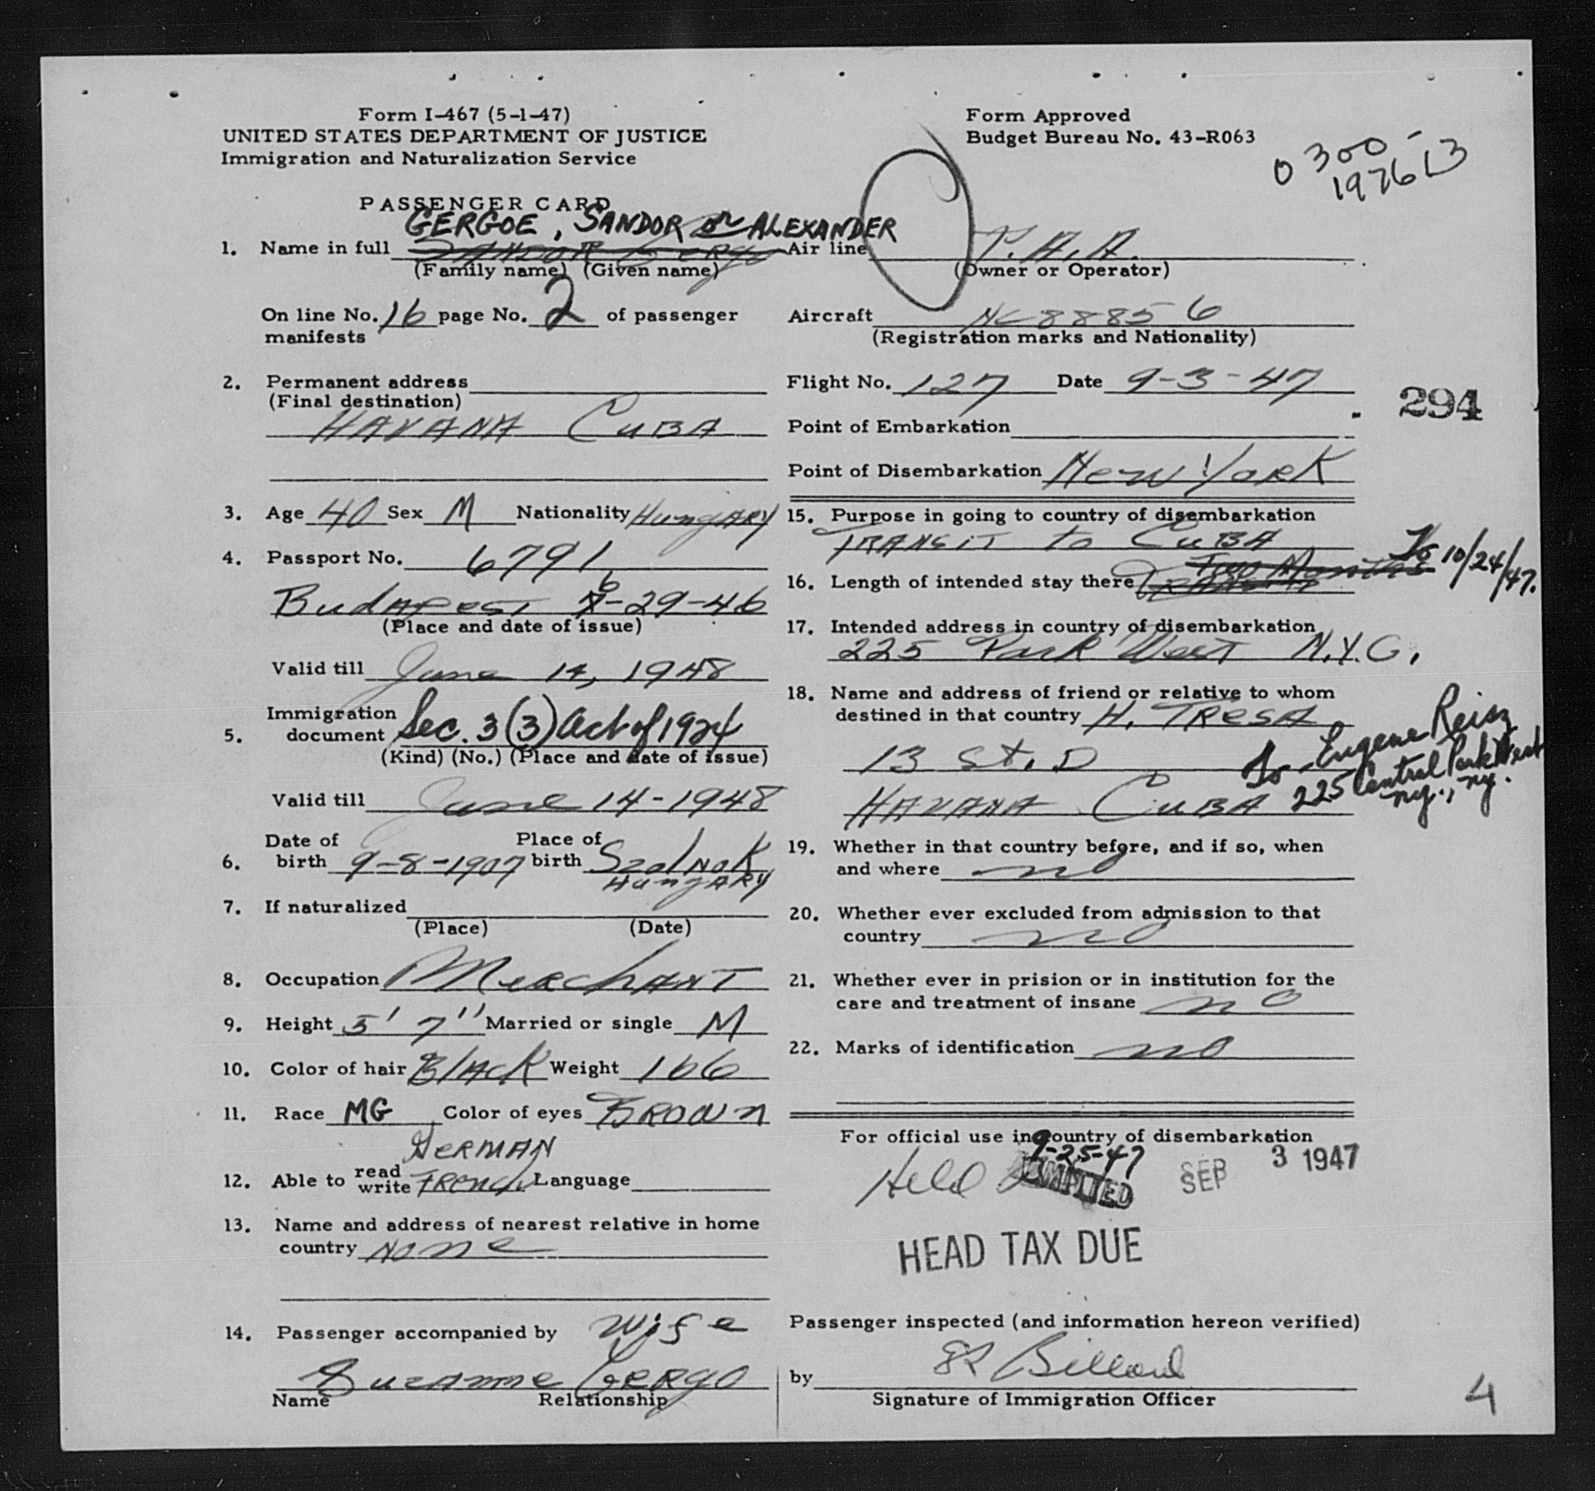 Form I-467 (5-1-47)
UNITED STATES DEPARTMENT OF JUSTICE
Immigration and Naturalization Service
Form Approved
Budget Bureau No. 43-R063
0300-
197613
PASSENGER CARD
GERGOE, SANDOR or ALEXANDER
1. Name in full SANDOR Gergo
(Family name) (Given name)
On line No. 16 page No. 2 of passenger
manifests
2. Permanent address
(Final destination)
HAVANA CUBA
3. Age 40 Sex M Nationality HungARY
4. Passport No. 6791
BudApest 6-29-46
(Place and date of issue)
Valid till June 14, 1948
Immigration
5. document Sec. 3(3) Act of 1924
(Kind) (No.) (Place and date of issue)
Valid till June 14-1948
Date of Place of
6. birth 9-8-1907 birth Szolnok
HungARY
7. If naturalized
(Place) (Date)
8. Occupation MerchANT
9. Height 5' 7" Married or single M
10. Color of hair BlAck Weight 166
11. Race MG Color of eyes BROWN
GERMAN
12. Able to read write FRench Language
13. Name and address of nearest relative in home
country None
14. Passenger accompanied by Wife
Suzanne Gergo
Name Relationship
Air line T.A.A.
(Owner or Operator)
Aircraft NC88856
(Registration marks and Nationality)
Flight No. 127 Date 9-3-47
294
Point of Embarkation
Point of Disembarkation New York
15. Purpose in going to country of disembarkation
TRANSIT to CUBA
16. Length of intended stay there Two Months To 10/24/47.
17. Intended address in country of disembarkation
225 Park West N.Y.C.
18. Name and address of friend or relative to whom
destined in that country H. TRESA
13 St. D
HAVANA CUBA
To - Eugene Reisz
225 Central Park West
N.Y., N.Y.
19. Whether in that country before, and if so, when
and where no
20. Whether ever excluded from admission to that
country no
21. Whether ever in prision or in institution for the
care and treatment of insane no
22. Marks of identification no
For official use in country of disembarkation
9-25-47
Held ADMITTED SEP SEP 3 1947
HEAD TAX DUE
Passenger inspected (and information hereon verified)
by Billard
Signature of Immigration Officer
4